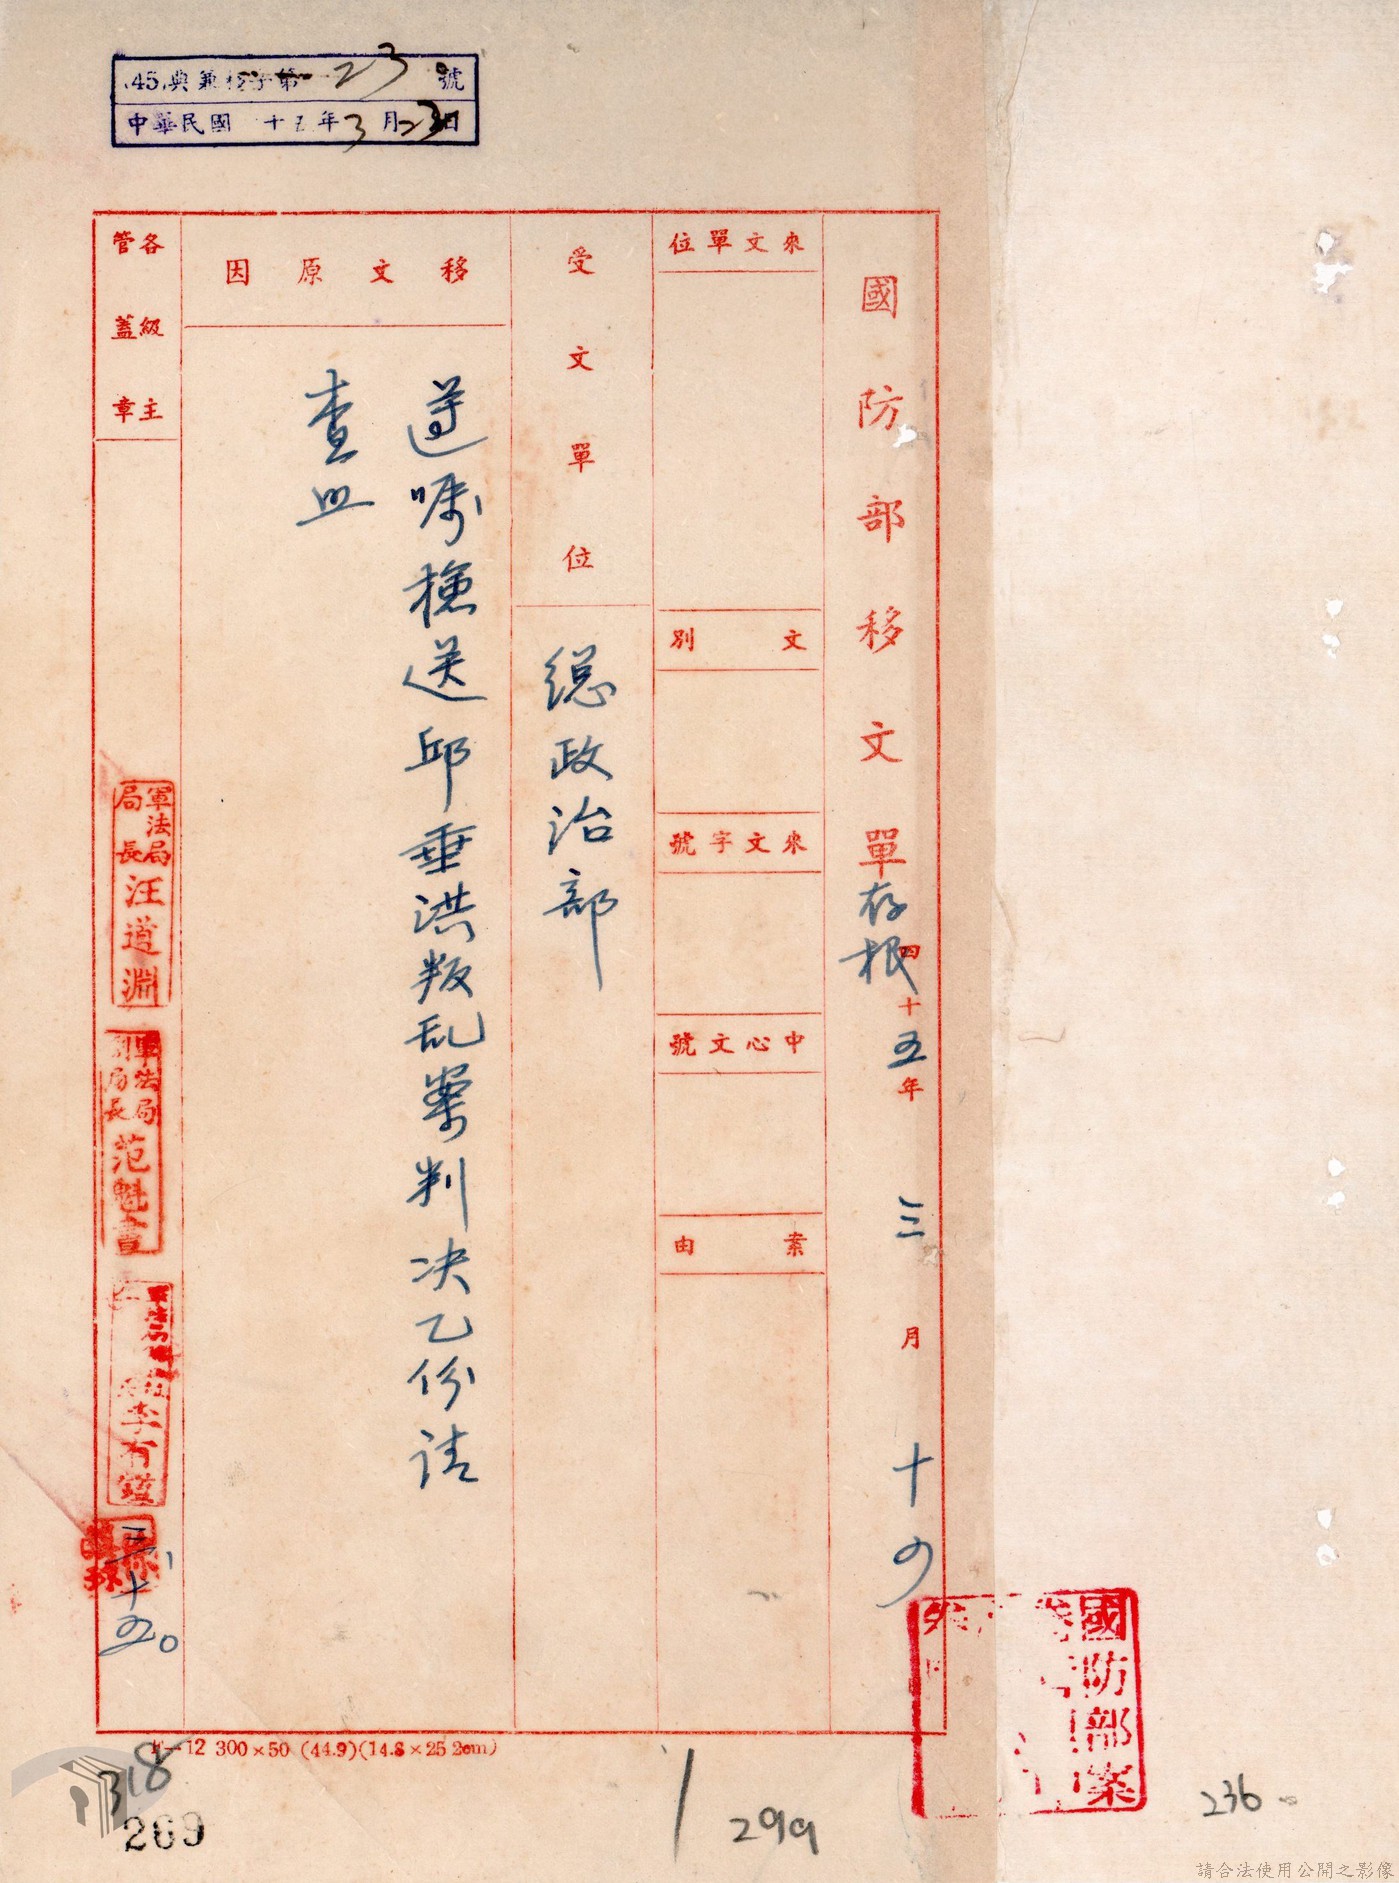 45典兼核字第23號
中華民國 十五年3月23日
國防部移文單存根
四十五年三月十四
來文單位
文別
來文字號
中心文號
案由
受文單位
總政治部
移文原因
遵嘱檢送邱垂洪叛乱案判决乙份請
查照
各級主
管蓋章
軍法局
局長
汪道淵
軍法局
副局長
范魁書
軍法局
李有
三、十五。
12 300×50 (44.9)(14.8×25 2cm)
國防部案
318
269
299
236
請合法使用公開之影像